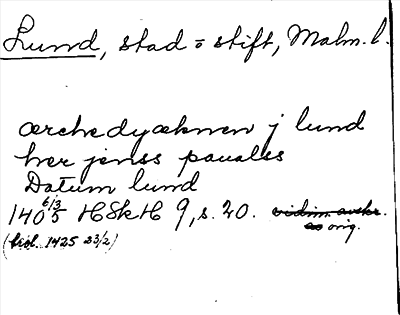 Lund, stad = stift, Malm. l.
ærchedyæknen j lund
her jenss pauæls
Datum lund
1405 6/3 HSkH 9, s. 20. vidim. avskr.
av orig.
(vid. 1425 23/2)